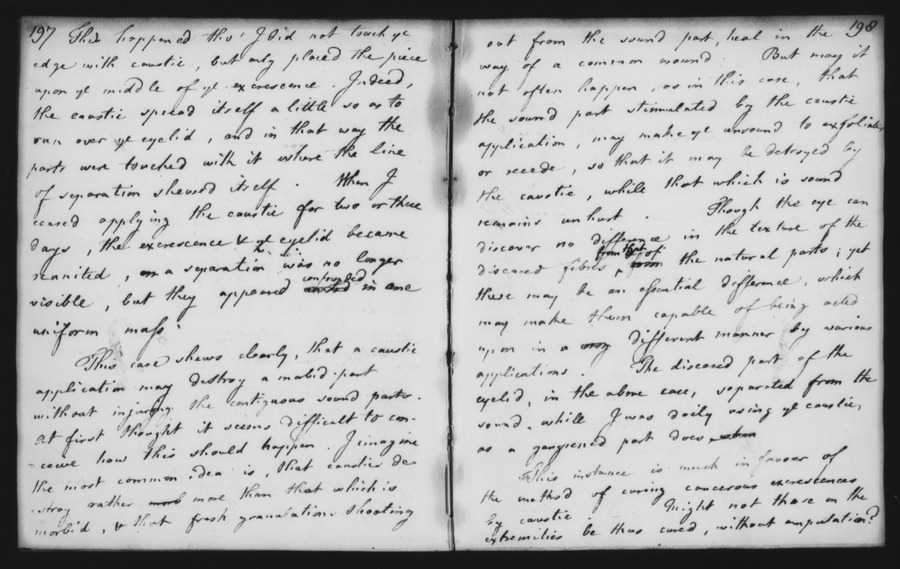 197
This happened tho' I did not touch ye
edge with caustic, but only placed the piece
upon ye middle of ye excrescence. Indeed,
the caustic spread itself a little so as to
run over ye eyelid, and in that way the
parts were touched with it where the line
of separation shewed itself. When I
ceased applying the caustic for two or three
days, the excrescence & ye eyelid became
reunited, a separation was no longer
visible, but they appeared confounded in one
uniform mass.
This case shews clearly, that a caustic
application may destroy a mobid part
without injuring the contiguous sound parts.
At first thought it seems difficult to con-
-ceive how this should happen. I imagine
the most common idea is, that caustics de-
-stroy rather more than that which is
morbid, & that fresh granulations shooting
198
out from the sound part, heal in the
way of a common wound. But may it
not often happen, as in this case, that
the sound part stimulated by the caustic
application, may make ye unsound to exfoliate
or recede, so that it may be detroyed by
the caustic, while that which is sound
remains unhurt. Though the eye can
discover no difference in the texture of the
diseased fibres, from that of the natural parts; yet
there may be an essential difference, which
may make them capable of being acted
upon in a different manner by various
applications. The diseased part of the
eyelid, in the above case, separated from the
sound, while I was daily using ye caustic,
as a gangrened part does
This instance is much in favour of
the method of curing cancerous excrescences
by caustic. Might not those on the
extremities be thus cured, without amputation?